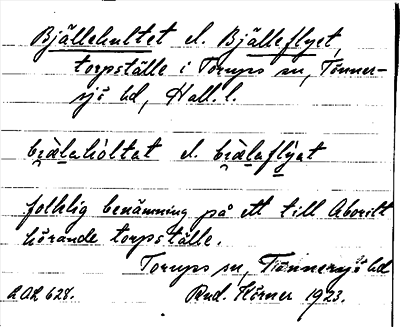 Bjällehultet el. Bjälleflyet,
torpställe i Torups sn, Tönner-
sjö hd, Hall. l.
bjälahòltat el. bjälaflyat
folklig benämning på ett till Aborilt
hörande torpställe.
Torups sn, Tönnersjö hd
LAL 628. Rud. Körner 1923.